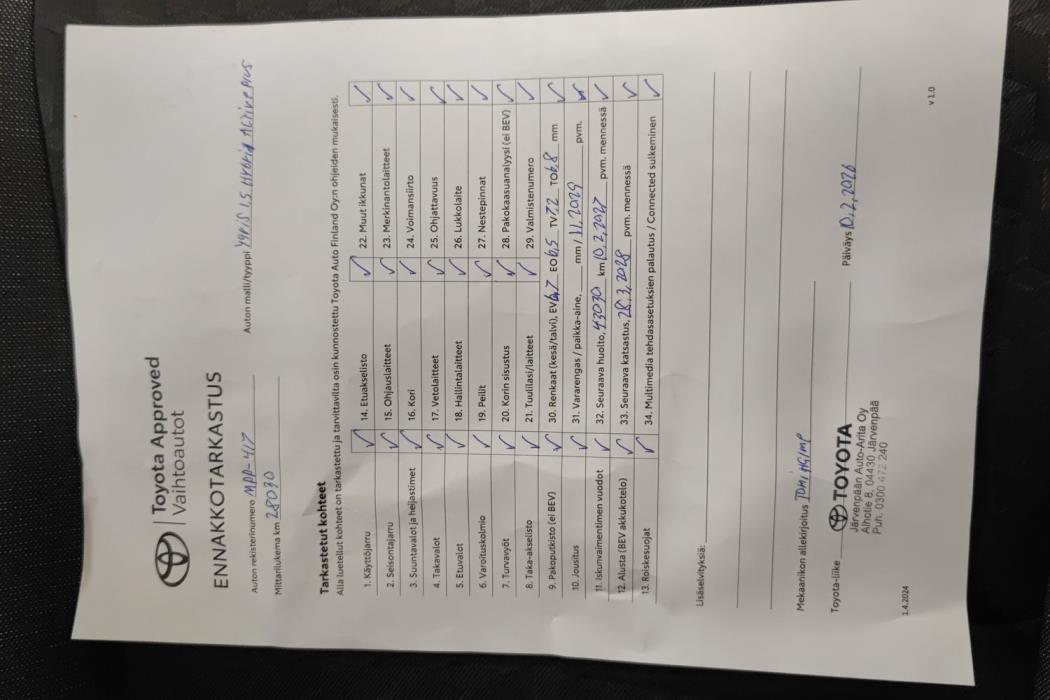 Toyota Approved
Vaihtoautot
ENNAKKOTARKASTUS
Auton rekisterinumero MPP-417 Auton malli/tyyppi Yaris 1.5 Hybrid Active Plus
Mittarilukema km 28030
Tarkastetut kohteet
Alla luetellut kohteet on tarkastettu ja tarvittavilta osin kunnostettu Toyota Auto Finland Oy:n ohjeiden mukaisesti.
1. Käyttöjarru ✓ 14. Etuakselisto ✓ 22. Muut ikkunat ✓
2. Seisontajarru ✓ 15. Ohjauslaitteet ✓ 23. Merkinantolaitteet ✓
3. Suuntavalot ja heijastimet ✓ 16. Kori ✓ 24. Voimansiirto ✓
4. Takavalot ✓ 17. Vetolaitteet ✓ 25. Ohjattavuus ✓
5. Etuvalot ✓ 18. Hallintalaitteet ✓ 26. Lukkolaite ✓
6. Varoituskolmio ✓ 19. Peilit ✓ 27. Nestepinnat ✓
7. Turvavyöt ✓ 20. Korin sisustus ✓ 28. Pakokaasuanalyysi (ei BEV) ✓
8. Taka-akselisto ✓ 21. Tuulilasi/laitteet ✓ 29. Valmistenumero ✓
9. Pakoputkisto (ei BEV) ✓ 30. Renkaat (kesä/talvi), EV 6,7 EO 6,5 TV 7,2 TO 6,8 mm ✓
10. Jousitus ✓ 31. Vararengas / paikka-aine, mm / 11.2029 pvm. ✓
11. Iskunvaimentimen vuodot ✓ 32. Seuraava huolto, 43030 km 10.2.2027 pvm. mennessä ✓
12. Alusta (BEV akkukotelo) ✓ 33. Seuraava katsastus, 28.3.2028 pvm. mennessä ✓
13. Roiskesuojat ✓ 34. Multimedia tehdasasetuksien palautus / Connected sulkeminen ✓
Lisäselvityksiä:
Mekaanikon allekirjoitus
Toyota-liike TOYOTA Päiväys 10.2.2026
Järvenpään Auto-Arita Oy
Alhotie 8, 04430 Järvenpää
Puh. 0300 472 240
1.4.2024 v 1.0